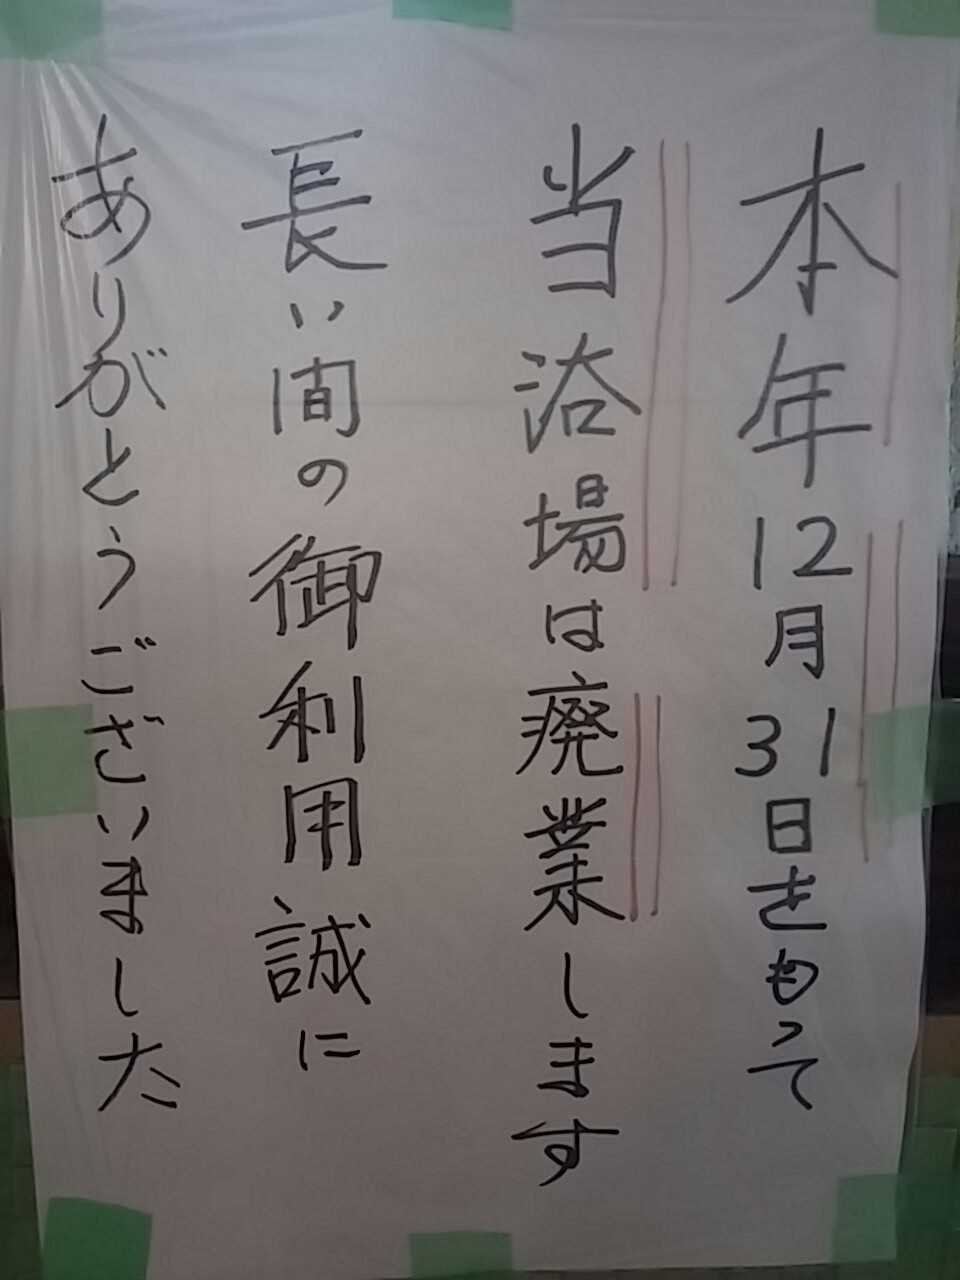 本年12月31日をもって
当浴場は廃業します
長い間の御利用誠に
ありがとうございました